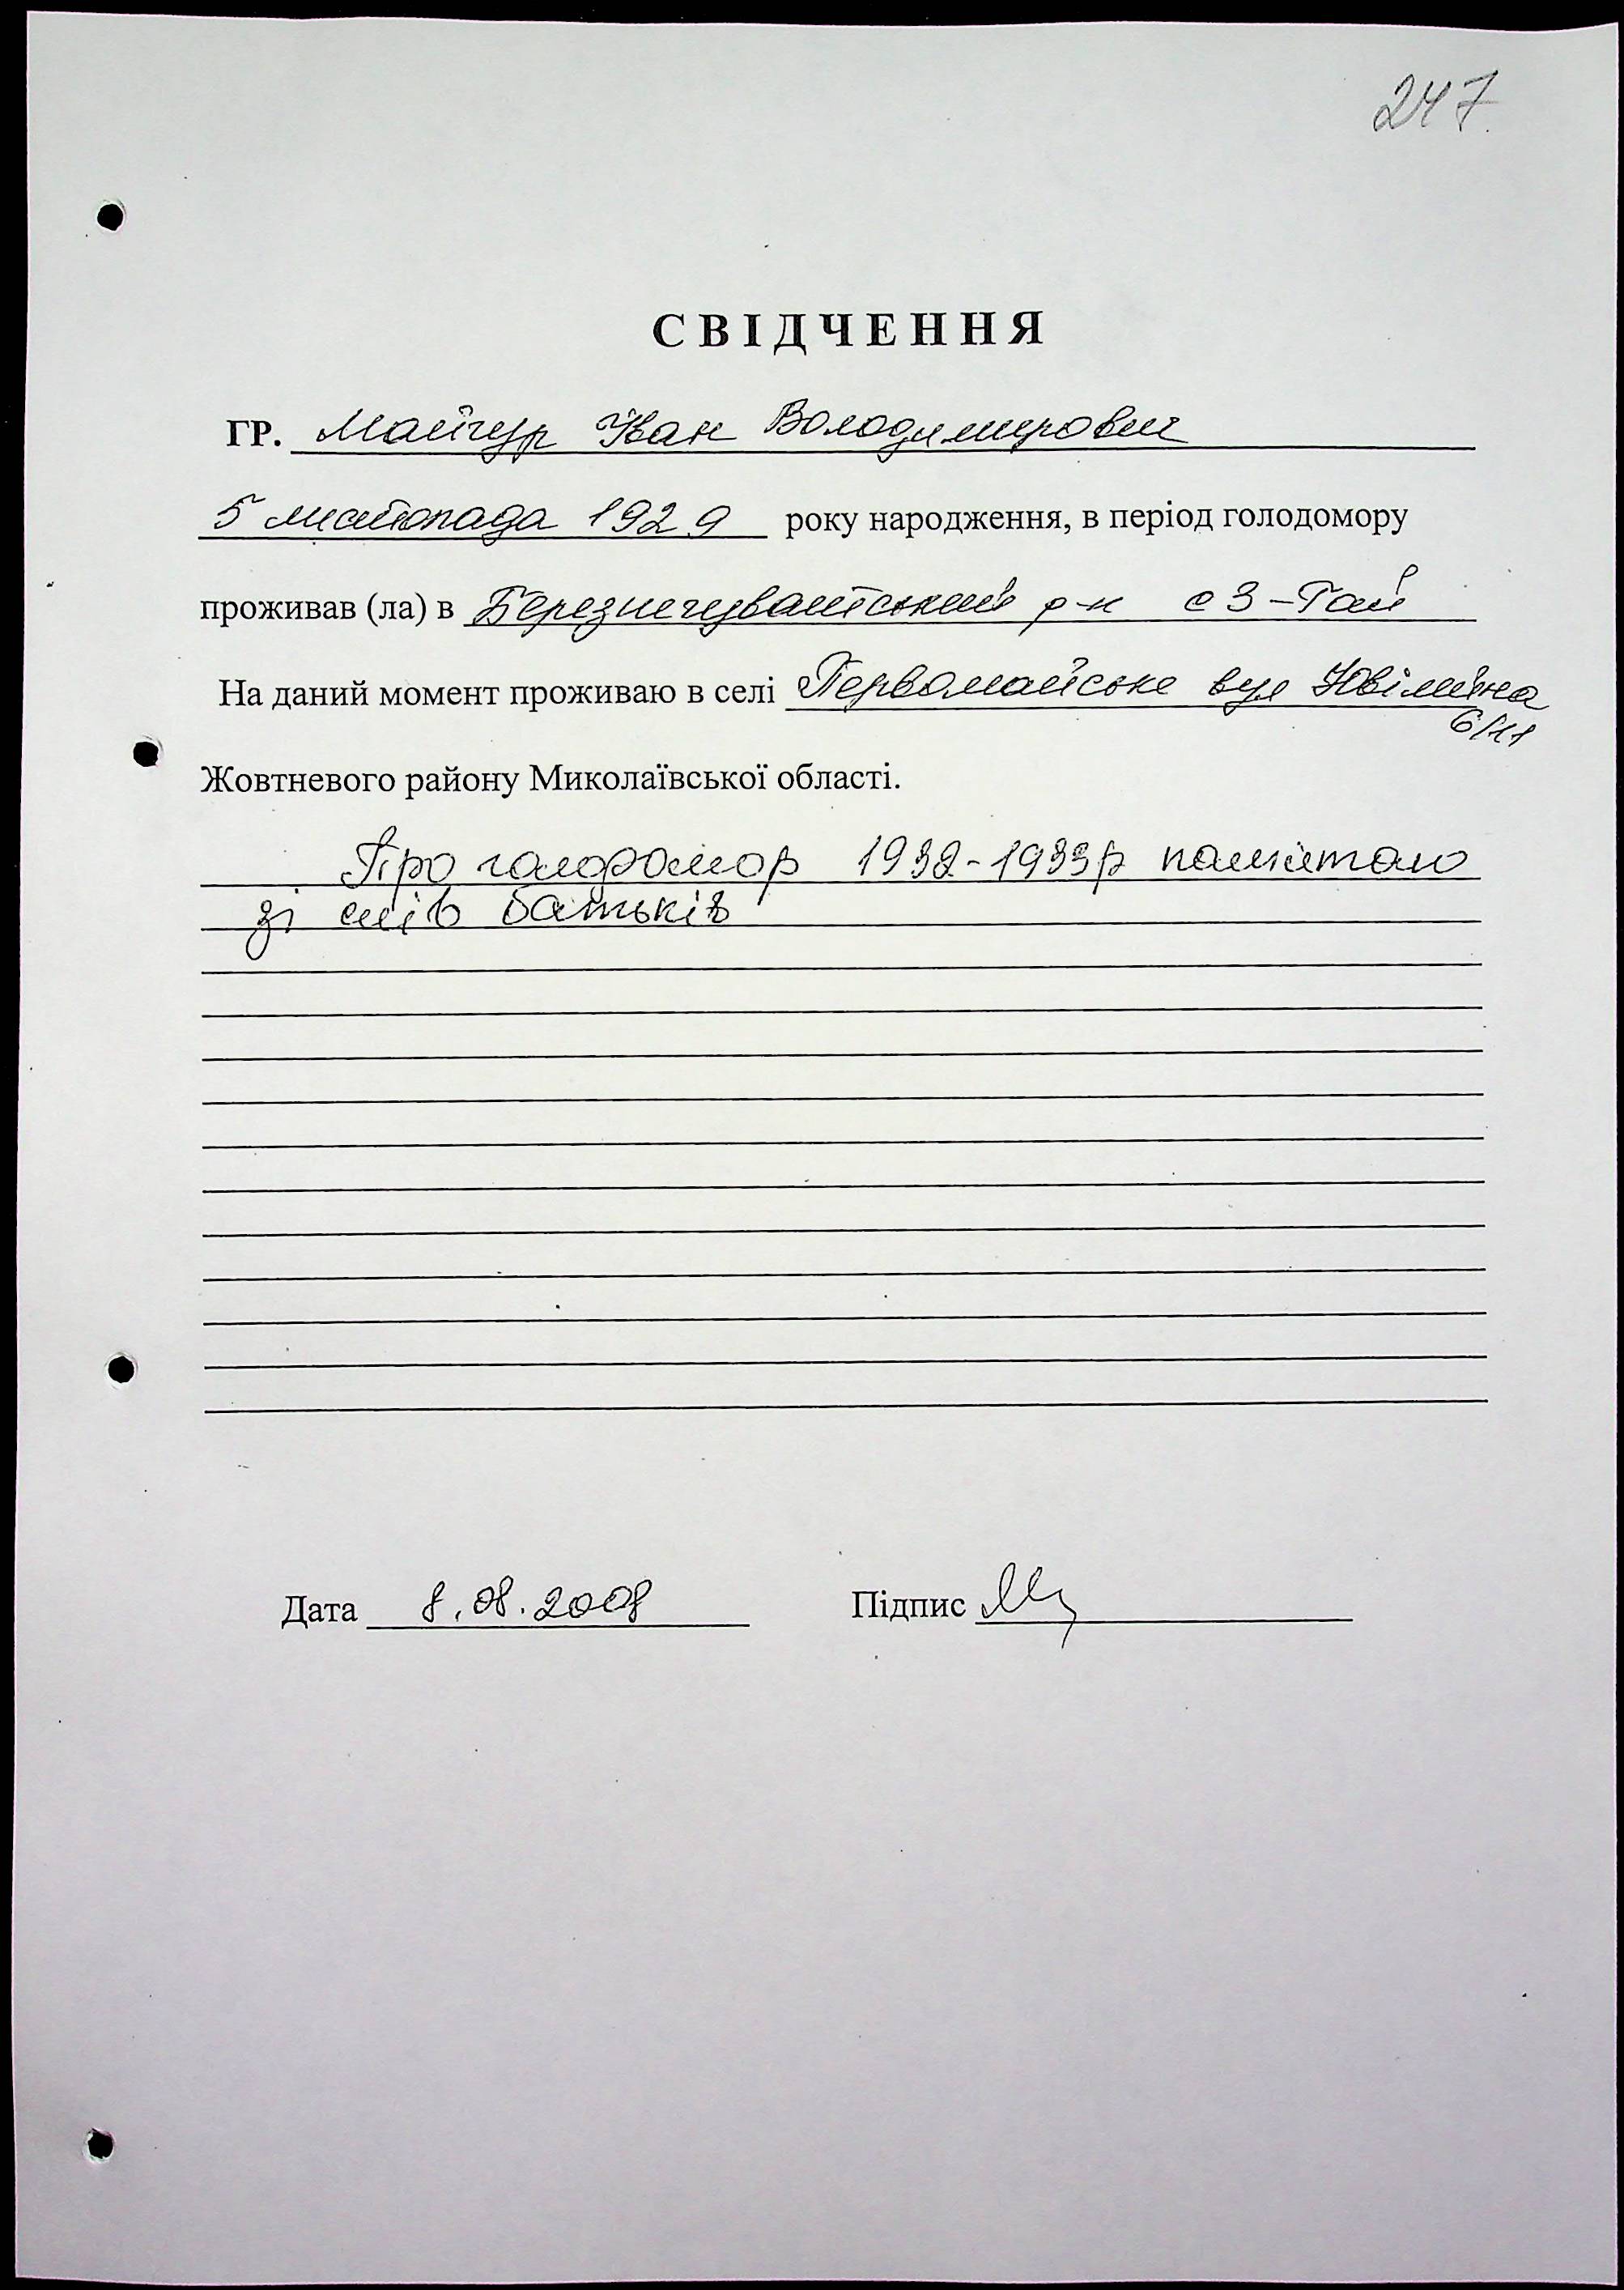 247
СВІДЧЕННЯ
ГР. Майчур Іван Володимирович
5 листопада 1929 року народження, в період голодомору
проживав (ла) в Березнегуватський р-н с З-Гай
На даний момент проживаю в селі Первомайське вул Ювілейна
6/11
Жовтневого району Миколаївської області.
Про голодомор 1932-1933р памятаю
зі слів батьків
Дата 8.08.2008 Підпис